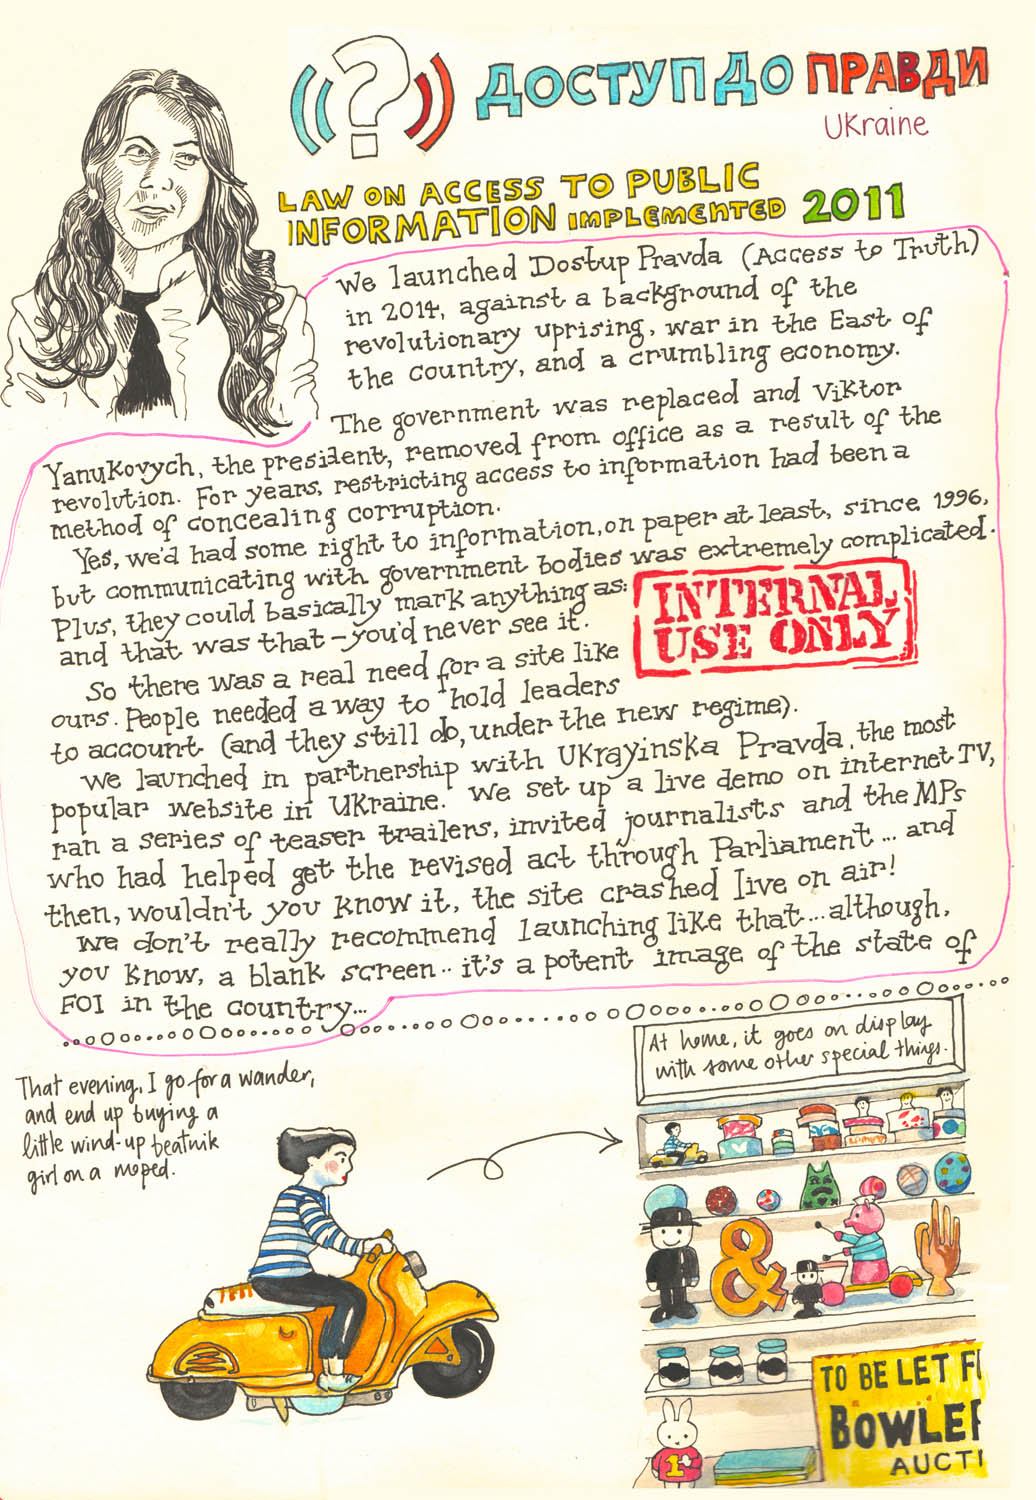 ?
ДОСТУП ДО ПРАВДИ
UKraine
LAW ON ACCESS TO PUBLIC
INFORMATION IMPLEMENTED 2011
We launched Dostup Pravda (Access to Truth)
in 2014, against a background of the
revolutionary uprising, war in the East of
the country, and a crumbling economy.
The government was replaced and Viktor
Yanukovych, the president, removed from office as a result of the
revolution. For years, restricting access to information had been a
method of concealing corruption.
Yes, we'd had some right to information, on paper at least, since 1996,
but communicating with government bodies was extremely complicated.
Plus, they could basically mark anything as:
INTERNAL
USE ONLY
and that was that – you'd never see it.
So there was a real need for a site like
ours. People needed a way to hold leaders
to account (and they still do, under the new regime).
We launched in partnership with UKrayinska Pravda, the most
popular website in Ukraine. We set up a live demo on internet TV,
ran a series of teaser trailers, invited journalists and the MPs
who had helped get the revised act through Parliament... and
then, wouldn't you know it, the site crashed live on air!
We don't really recommend launching like that... although,
you know, a blank screen.. it's a potent image of the state of
FOI in the country...
That evening, I go for a wander,
and end up buying a
little wind-up beatnik
girl on a moped.
At home, it goes on display
with some other special things.
&
TO BE LET F
BOWLE
AUCTI
1